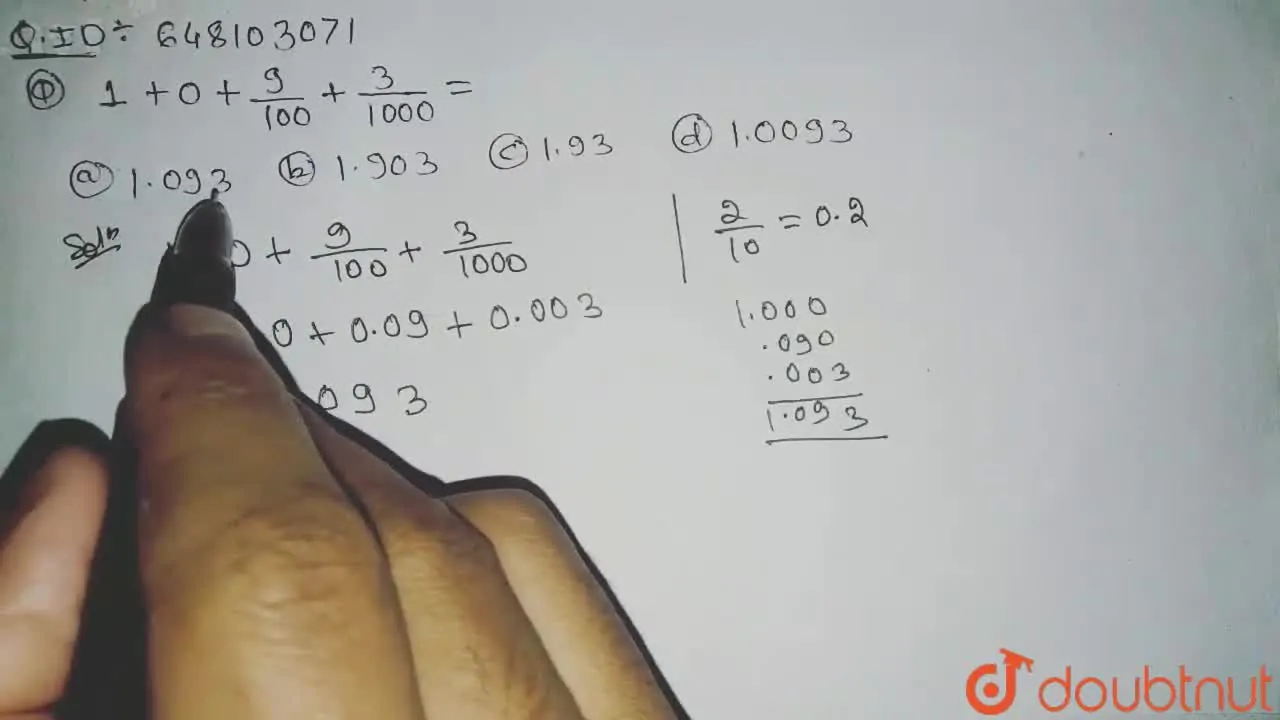 Q.ID ÷ 648103071
Q 1 + 0 + 9/100 + 3/1000 =
(a) 1.093 (b) 1.903 (c) 1.93 (d) 1.0093
Solⁿ 0 + 9/100 + 3/1000
0 + 0.09 + 0.003
093
2/10 = 0.2
1.000
.090
.003
1.093
doubtnut